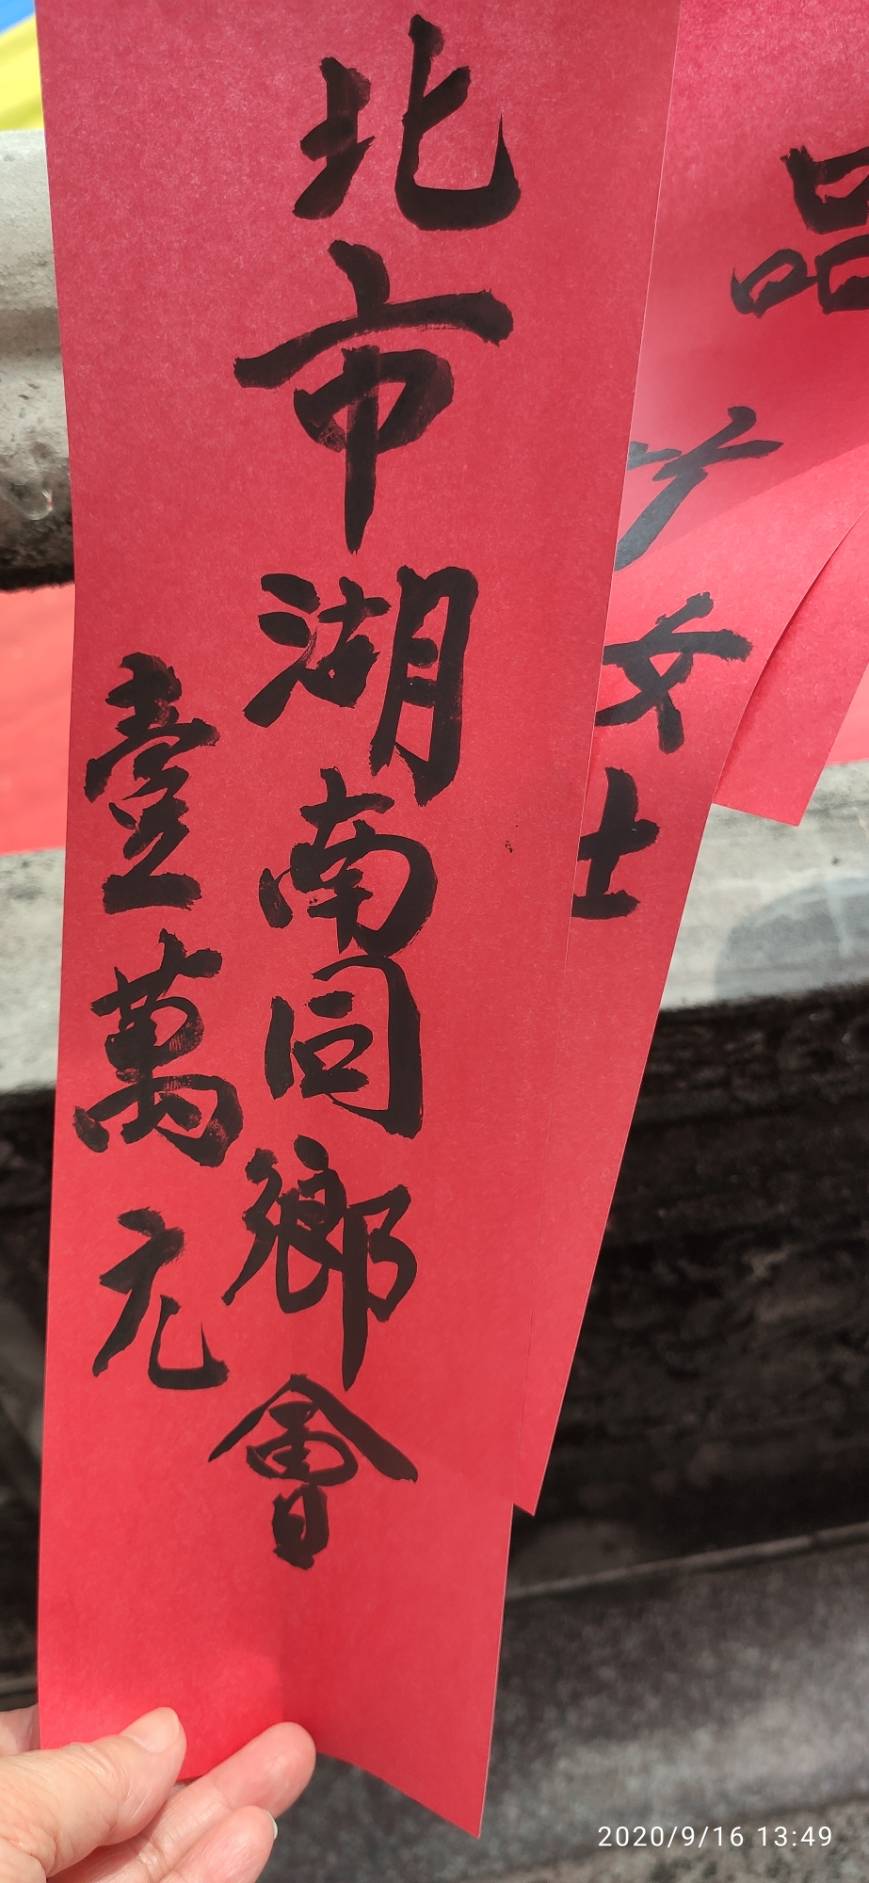 北市湖南同鄉會
壹萬元
品
女士
2020/9/16 13:49